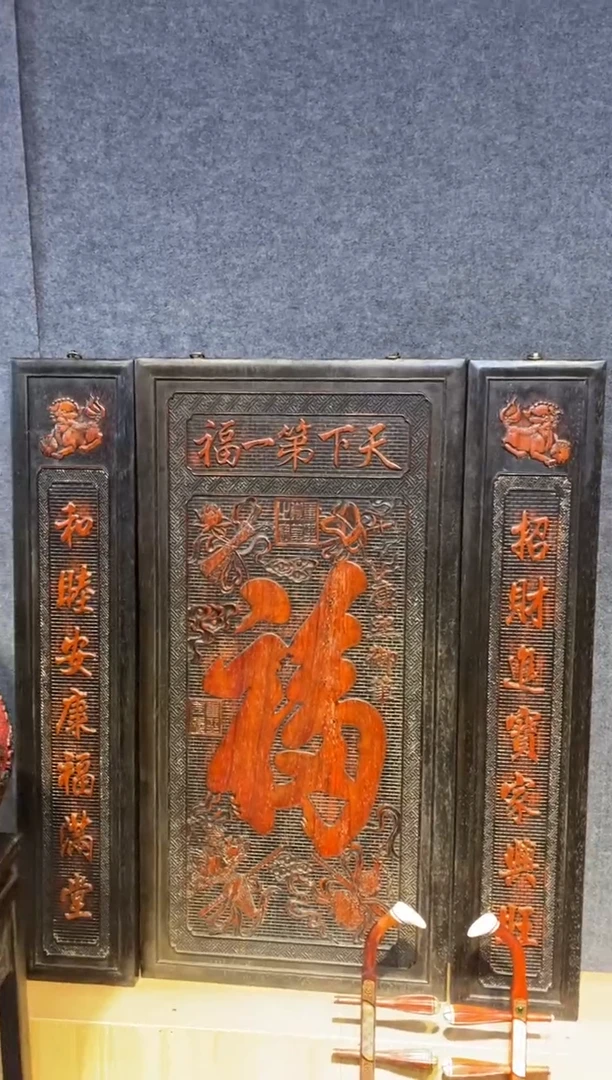 天下第一福
福
招財進寶家興旺
和睦安康福滿堂